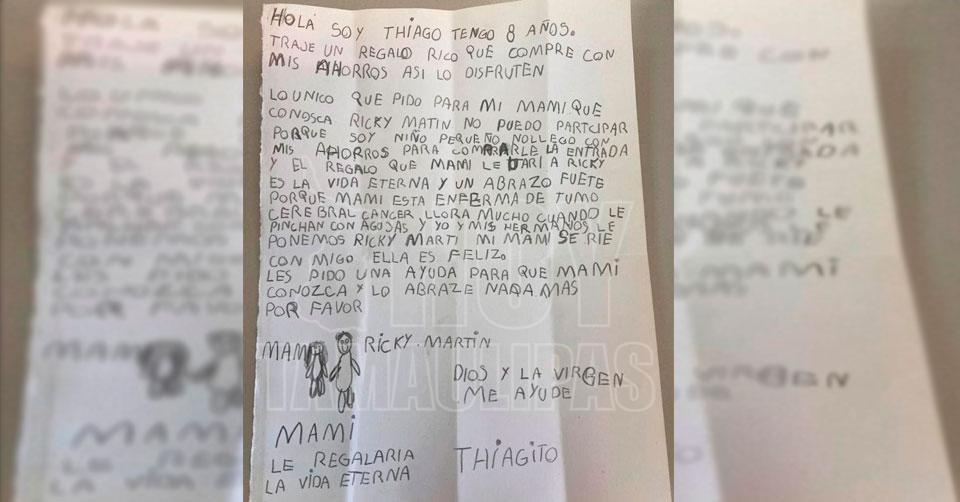 HOLA SOY THIAGO TENGO 8 AÑOS.
TRAJE UN REGALO RICO QUE COMPRE CON
MIS AHORROS ASI LO DISFRUTEN
LO UNICO QUE PIDO PARA MI MAMI QUE
CONOSCA RICKY MATIN NO PUEDO PARTCIPAR
PORQUE SOY NIÑO PEQUEÑO NOLLEGO CON
MIS AHORROS PARA COMPRARLE LA ENTRADA
Y EL REGALO QUE MAMI LE DARI A RICKY
ES LA VIDA ETERNA Y UN ABRAZO FUETE
PORQUE MAMI ESTA ENFERMA DE TUMO
CEREBRAL CANCER LLORA MUCHO CUANDO LE
PINCHAN CON AGUSAS Y YO Y MIS HERMANOS LE
PONEMOS RICKY MARTI MI MAMI SE RIE
CON MIGO ELLA ES FELIZ.
LES PIDO UNA AYUDA PARA QUE MAMI
CONOZCA Y LO ABRAZE NADA MAS
POR FAVOR
MAMI RICKY MARTIN
DIOS Y LA VIRGEN
ME AYUDE
MAMI
LE REGALARIA
LA VIDA ETERNA
THIAGITO
HOY
TAMAULIPAS